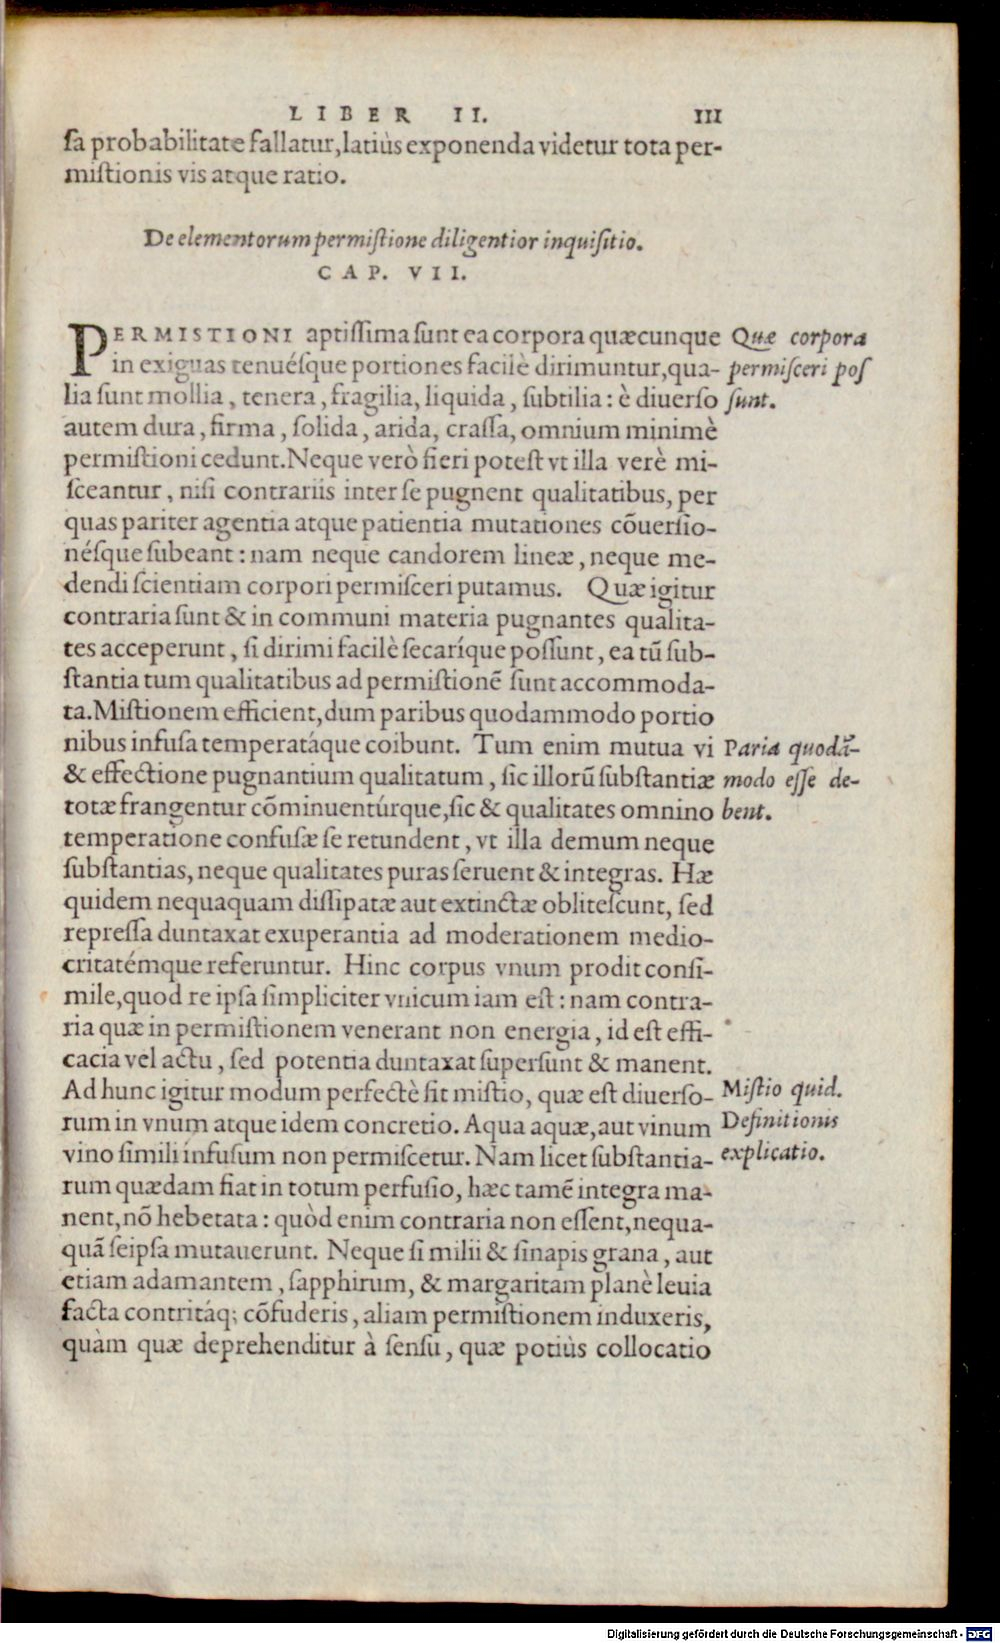 LIBER II. 111
ſa probabilitate fallatur, latiùs exponenda videtur tota per-
miſtionis vis atque ratio.
De elementorum permiſtione diligentior inquiſitio.
CAP. VII.
PERMISTIONI aptiſſima ſunt ea corpora quæcunque
in exiguas tenuéſque portiones facilè dirimuntur, qua-
lia ſunt mollia, tenera, fragilia, liquida, ſubtilia: è diuerſo
autem dura, firma, ſolida, arida, craſſa, omnium minimè
permiſtioni cedunt. Neque verò fieri poteſt vt illa verè mi-
ſceantur, niſi contrariis inter ſe pugnent qualitatibus, per
quas pariter agentia atque patientia mutationes cõuerſio-
néſque ſubeant: nam neque candorem lineæ, neque me-
dendi ſcientiam corpori permiſceri putamus. Quæ igitur
contraria ſunt & in communi materia pugnantes qualita-
tes acceperunt, ſi dirimi facilè ſecaríque poſſunt, ea tũ ſub-
ſtantia tum qualitatibus ad permiſtionẽ ſunt accommoda-
ta. Miſtionem efficient, dum paribus quodammodo portio
nibus infuſa temperatáque coibunt. Tum enim mutua vi
& effectione pugnantium qualitatum, ſic illorũ ſubſtantiæ
totæ frangentur cõminuentúrque, ſic & qualitates omnino
temperatione confuſæ ſe retundent, vt illa demum neque
ſubſtantias, neque qualitates puras ſeruent & integras. Hæ
quidem nequaquam diſſipatæ aut extinctæ obliteſcunt, ſed
repreſſa duntaxat exuperantia ad moderationem medio-
critatémque referuntur. Hinc corpus vnum prodit conſi-
mile, quod re ipſa ſimpliciter vnicum iam eſt: nam contra-
ria quæ in permiſtionem venerant non energia, id eſt effi-
cacia vel actu, ſed potentia duntaxat ſuperſunt & manent.
Ad hunc igitur modum perfectè fit miſtio, quæ eſt diuerſo-
rum in vnum atque idem concretio. Aqua aquæ, aut vinum
vino ſimili infuſum non permiſcetur. Nam licet ſubſtantia-
rum quædam fiat in totum perfuſio, hæc tamẽ integra ma-
nent, nõ hebetata: quòd enim contraria non eſſent, nequa-
quã ſeipſa mutauerunt. Neque ſi milii & ſinapis grana, aut
etiam adamantem, ſapphirum, & margaritam planè leuia
facta contritáq; cõfuderis, aliam permiſtionem induxeris,
quàm quæ deprehenditur à ſenſu, quæ potiùs collocatio
Quæ corpora
permiſceri poſ
ſunt.
Paria quodã-
modo eſſe de-
bent.
Miſtio quid.
Definitionis
explicatio.
Digitalisierung gefördert durch die Deutsche Forschungsgemeinschaft - DFG